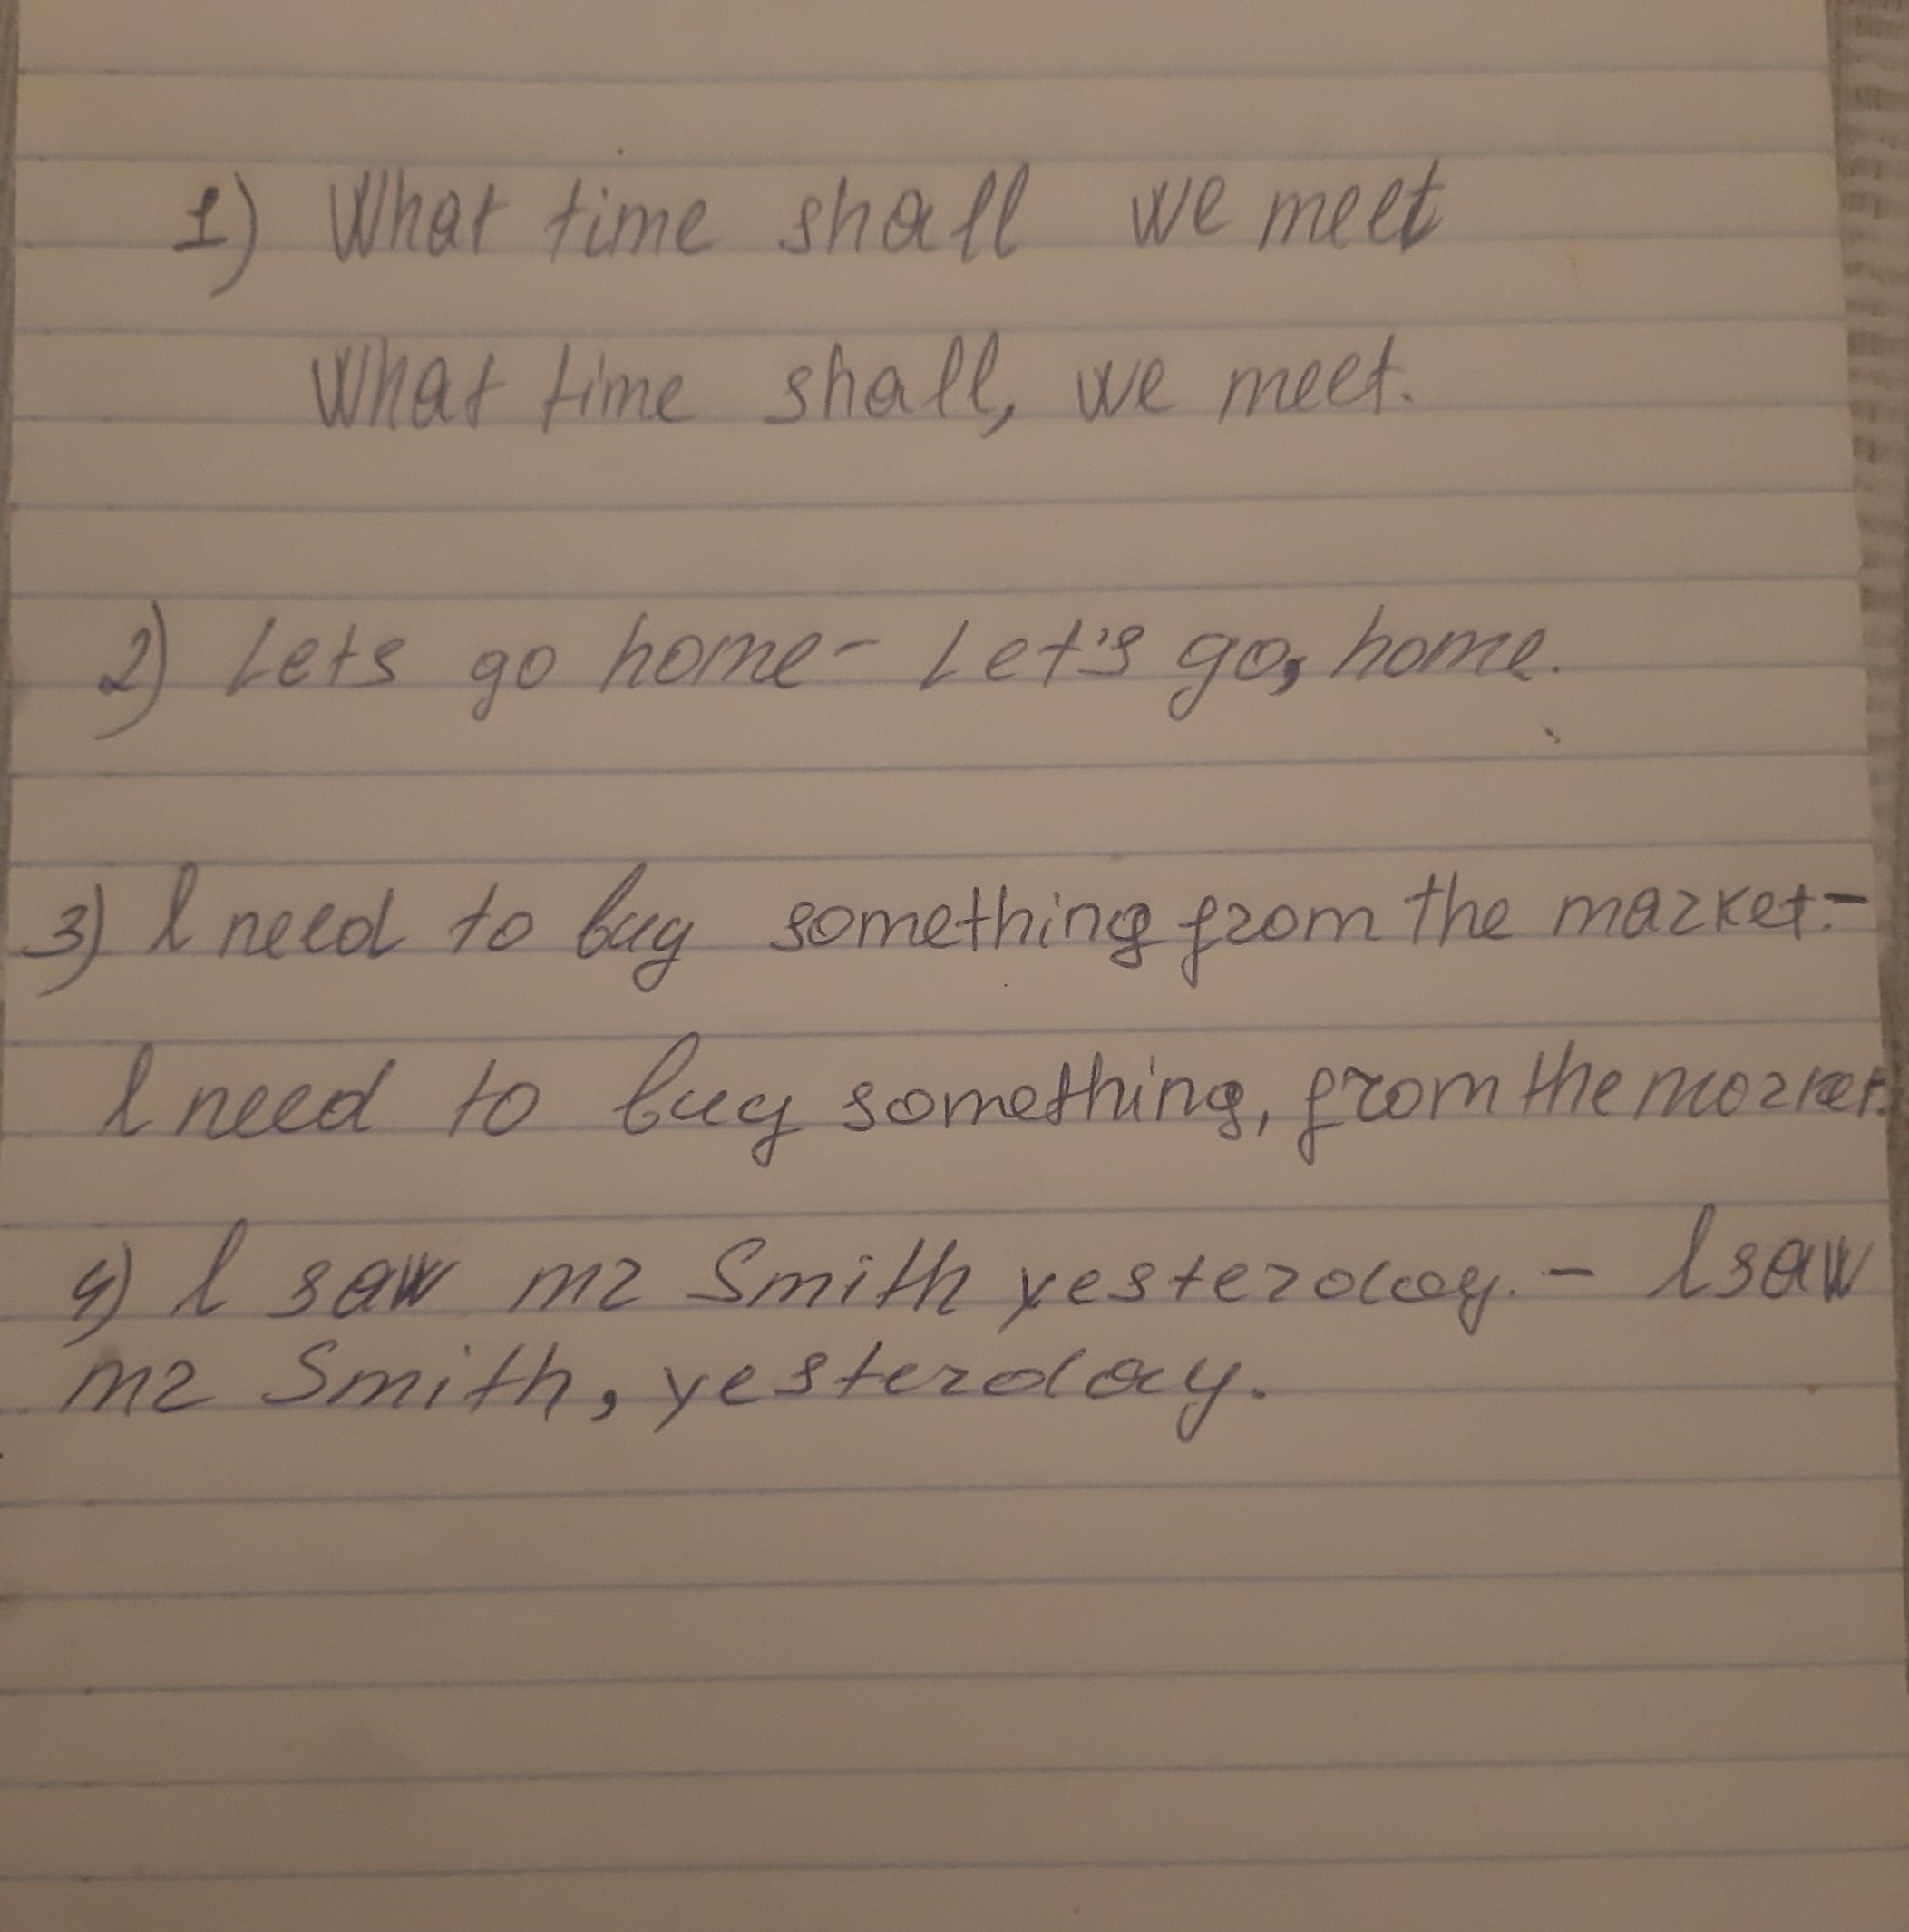 1) What time shall we meet
What time shall, we meet.
2) Lets go home - Let's go, home.
3) I need to buy something from the market. -
I need to buy something, from the market.
4) I saw mr Smith yesterday. - I saw
mr Smith, yesterday.